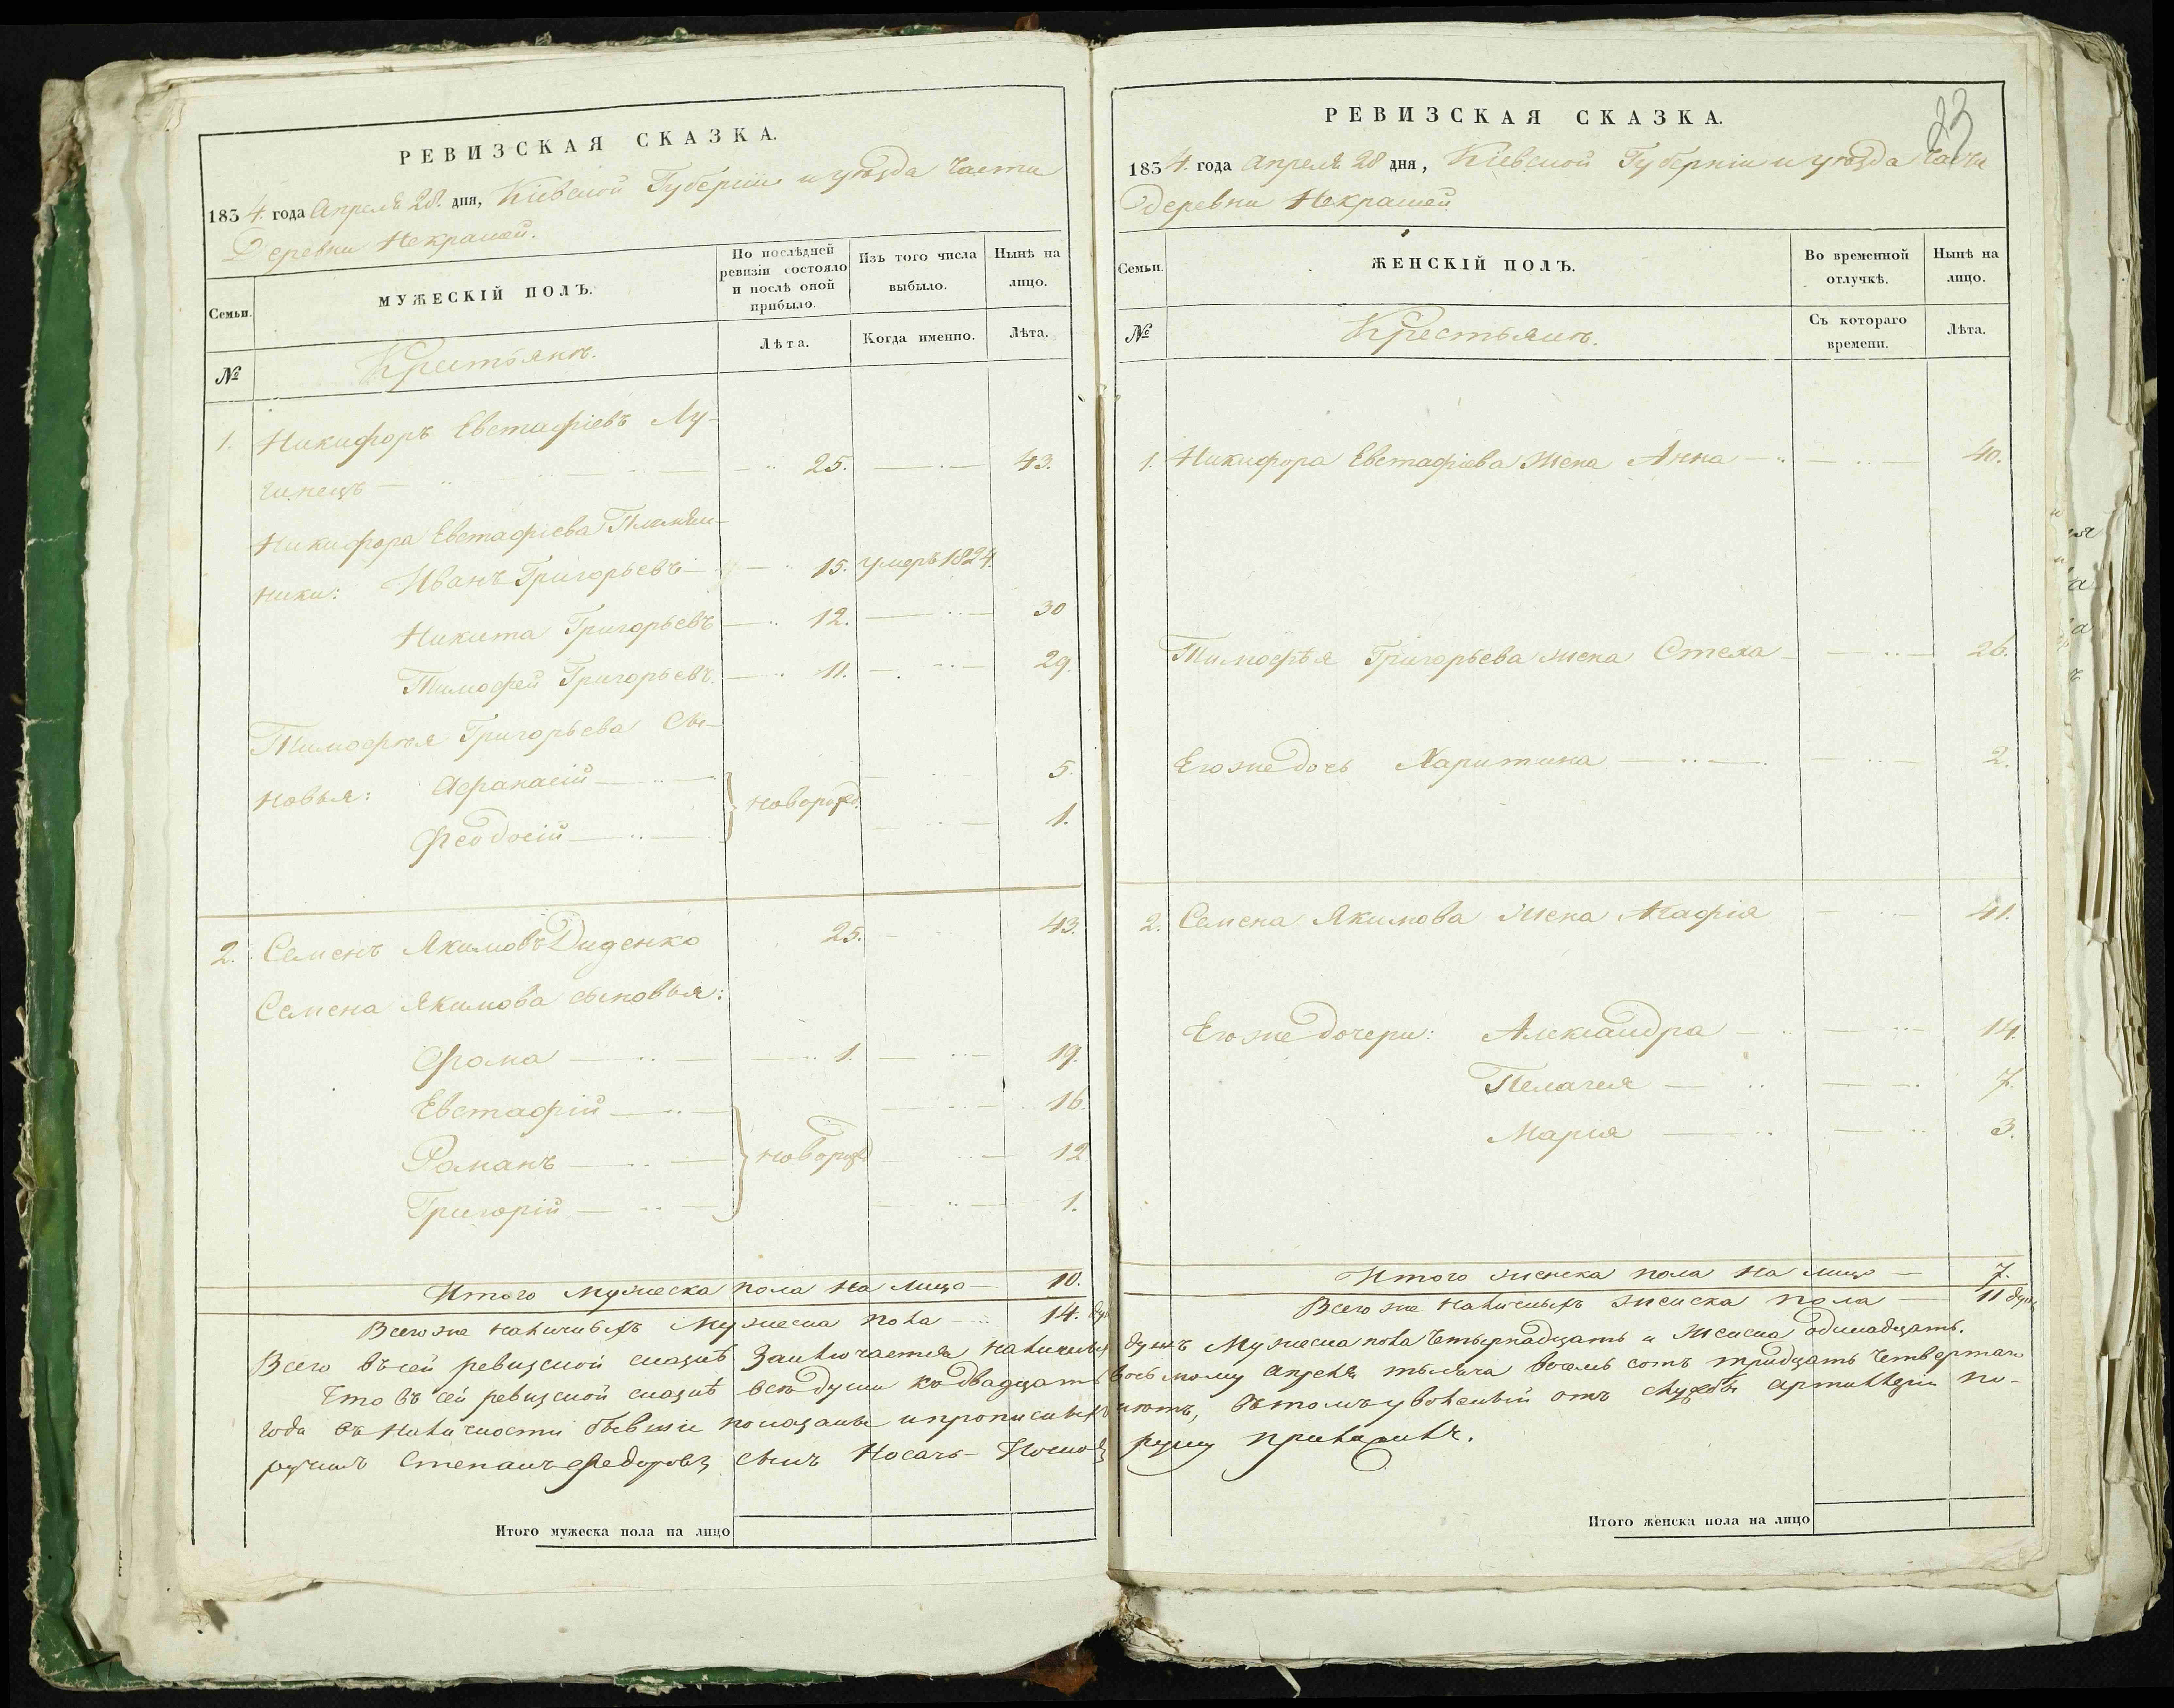 РЕВИЗСКАЯ СКАЗКА.
1834. года Апреля 28. дня, Кіевской Губерніи и уѣзда части
Деревни Некрашей.
Семьи.
МУЖЕСКІЙ ПОЛЪ.
По послѣдней
ревизіи состояло
и послѣ оной
прибыло.
Изъ того числа
выбыло.
Нынѣ на
лицо.
№
Крестьянъ.
Лѣта.
Когда именно.
Лѣта.
1. Никифоръ Евстафіевъ Лу-
чинецъ 25. 43.
Никифора Евстафіева Племян-
ники: Иванъ Григорьевъ 15. умеръ 1824.
Никита Григорьевъ 12. 30
Тимофей Григорьевъ. 11. 29.
Тимофѣя Григорьева Сы-
новья: Афанасій 5.
новорожд.
Феодосій 1.
2. Семенъ Якимовъ Диденко 25. 43.
Семена Якимова сыновья:
Фома 1. 19.
Евстафій 16.
Романъ новорожд 12
Григорій 1.
Итого мужеска пола на лицо 10.
Всего же наличныхъ мужеска пола 14. ду
РЕВИЗСКАЯ СКАЗКА.
23
1834. года апреля 28 дня, Кіевской Губерніи и уѣзда части
Деревни Некрашей
Семьи.
ЖЕНСКІЙ ПОЛЪ.
Во временной
отлучкѣ.
Нынѣ на
лицо.
№
Крестьянъ.
Съ котораго
времени.
Лѣта.
1. Никифора Евстафіева жена Анна 40.
Тимофѣя Григорьева жена Стеха 26.
Его же дочь Харитина 2.
2. Семена Якимова жена Агафія 41.
Его же дочери: Александра 14.
Пелагея 7.
Марія 3.
Итого женска пола на лицо 7.
Всего же наличныхъ женска пола 11 душъ
Всего въ сей ревизской сказкѣ заключается наличныхъ душъ Мужеска пола четырнадцать и Женска одинадцать.
Что въ сей ревизской сказкѣ всѣ души къ двадцать восьмому апреля тысяча восемь сотъ тридцать четвертаго
года въ наличности бывшіе показаны и прописныхъ нѣтъ, въ томъ уволенный отъ службы артиллеріи по-
ручикъ Степанъ Федоровъ сынъ Носачь- руку приложилъ.
Итого мужеска пола на лицо
Итого женска пола на лицо